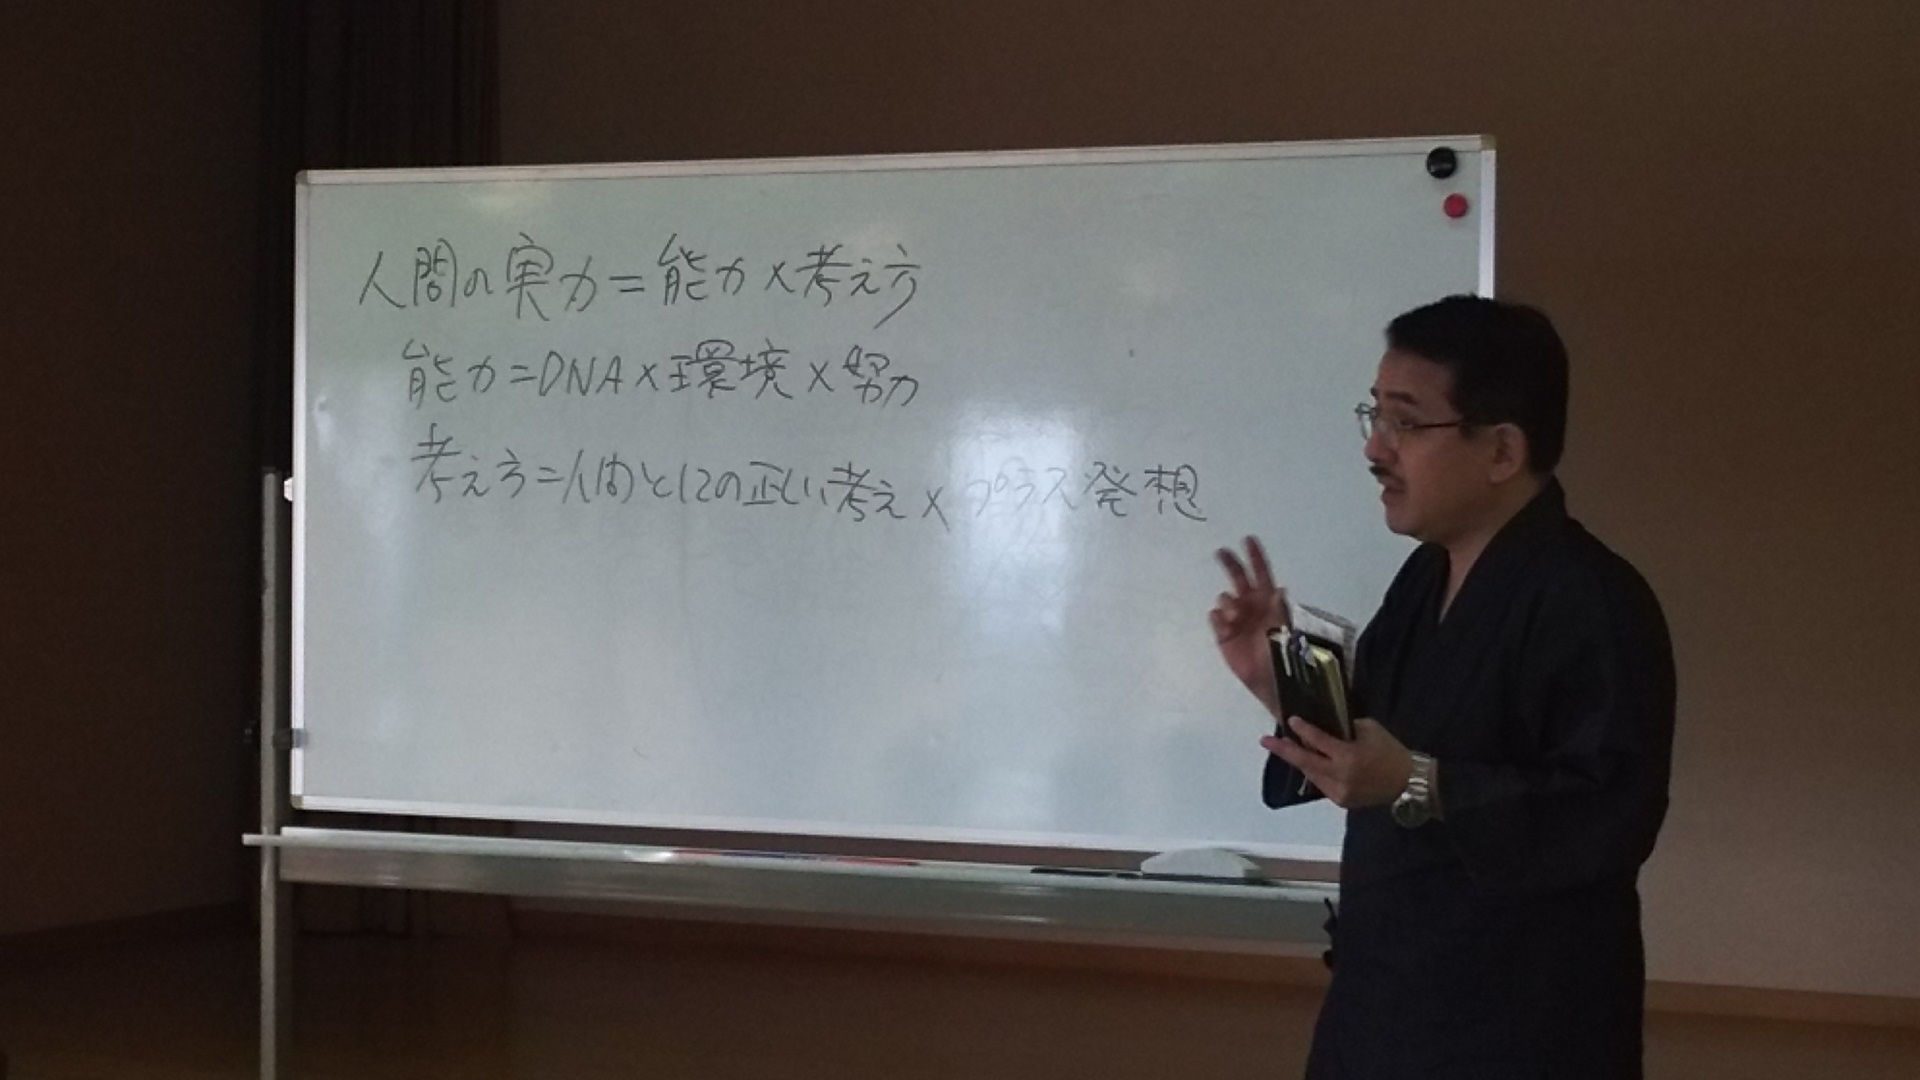 人間の実力=能力×考え方
能力=DNA×環境×努力
考え方=人間としての正しい考え×プラス発想